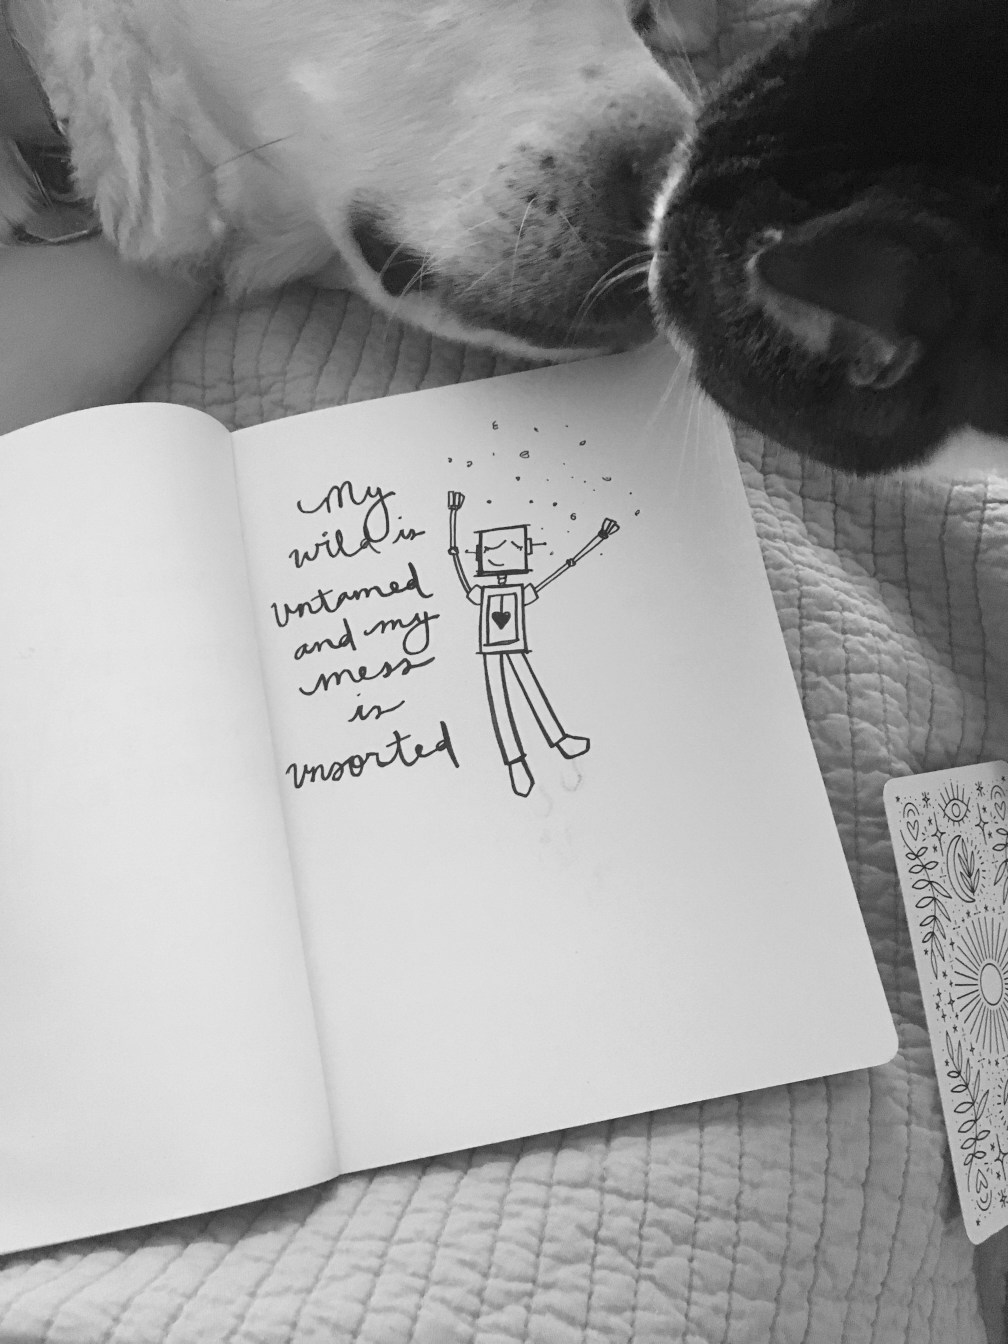 My
wild is
untamed
and my
mess
is
unsorted